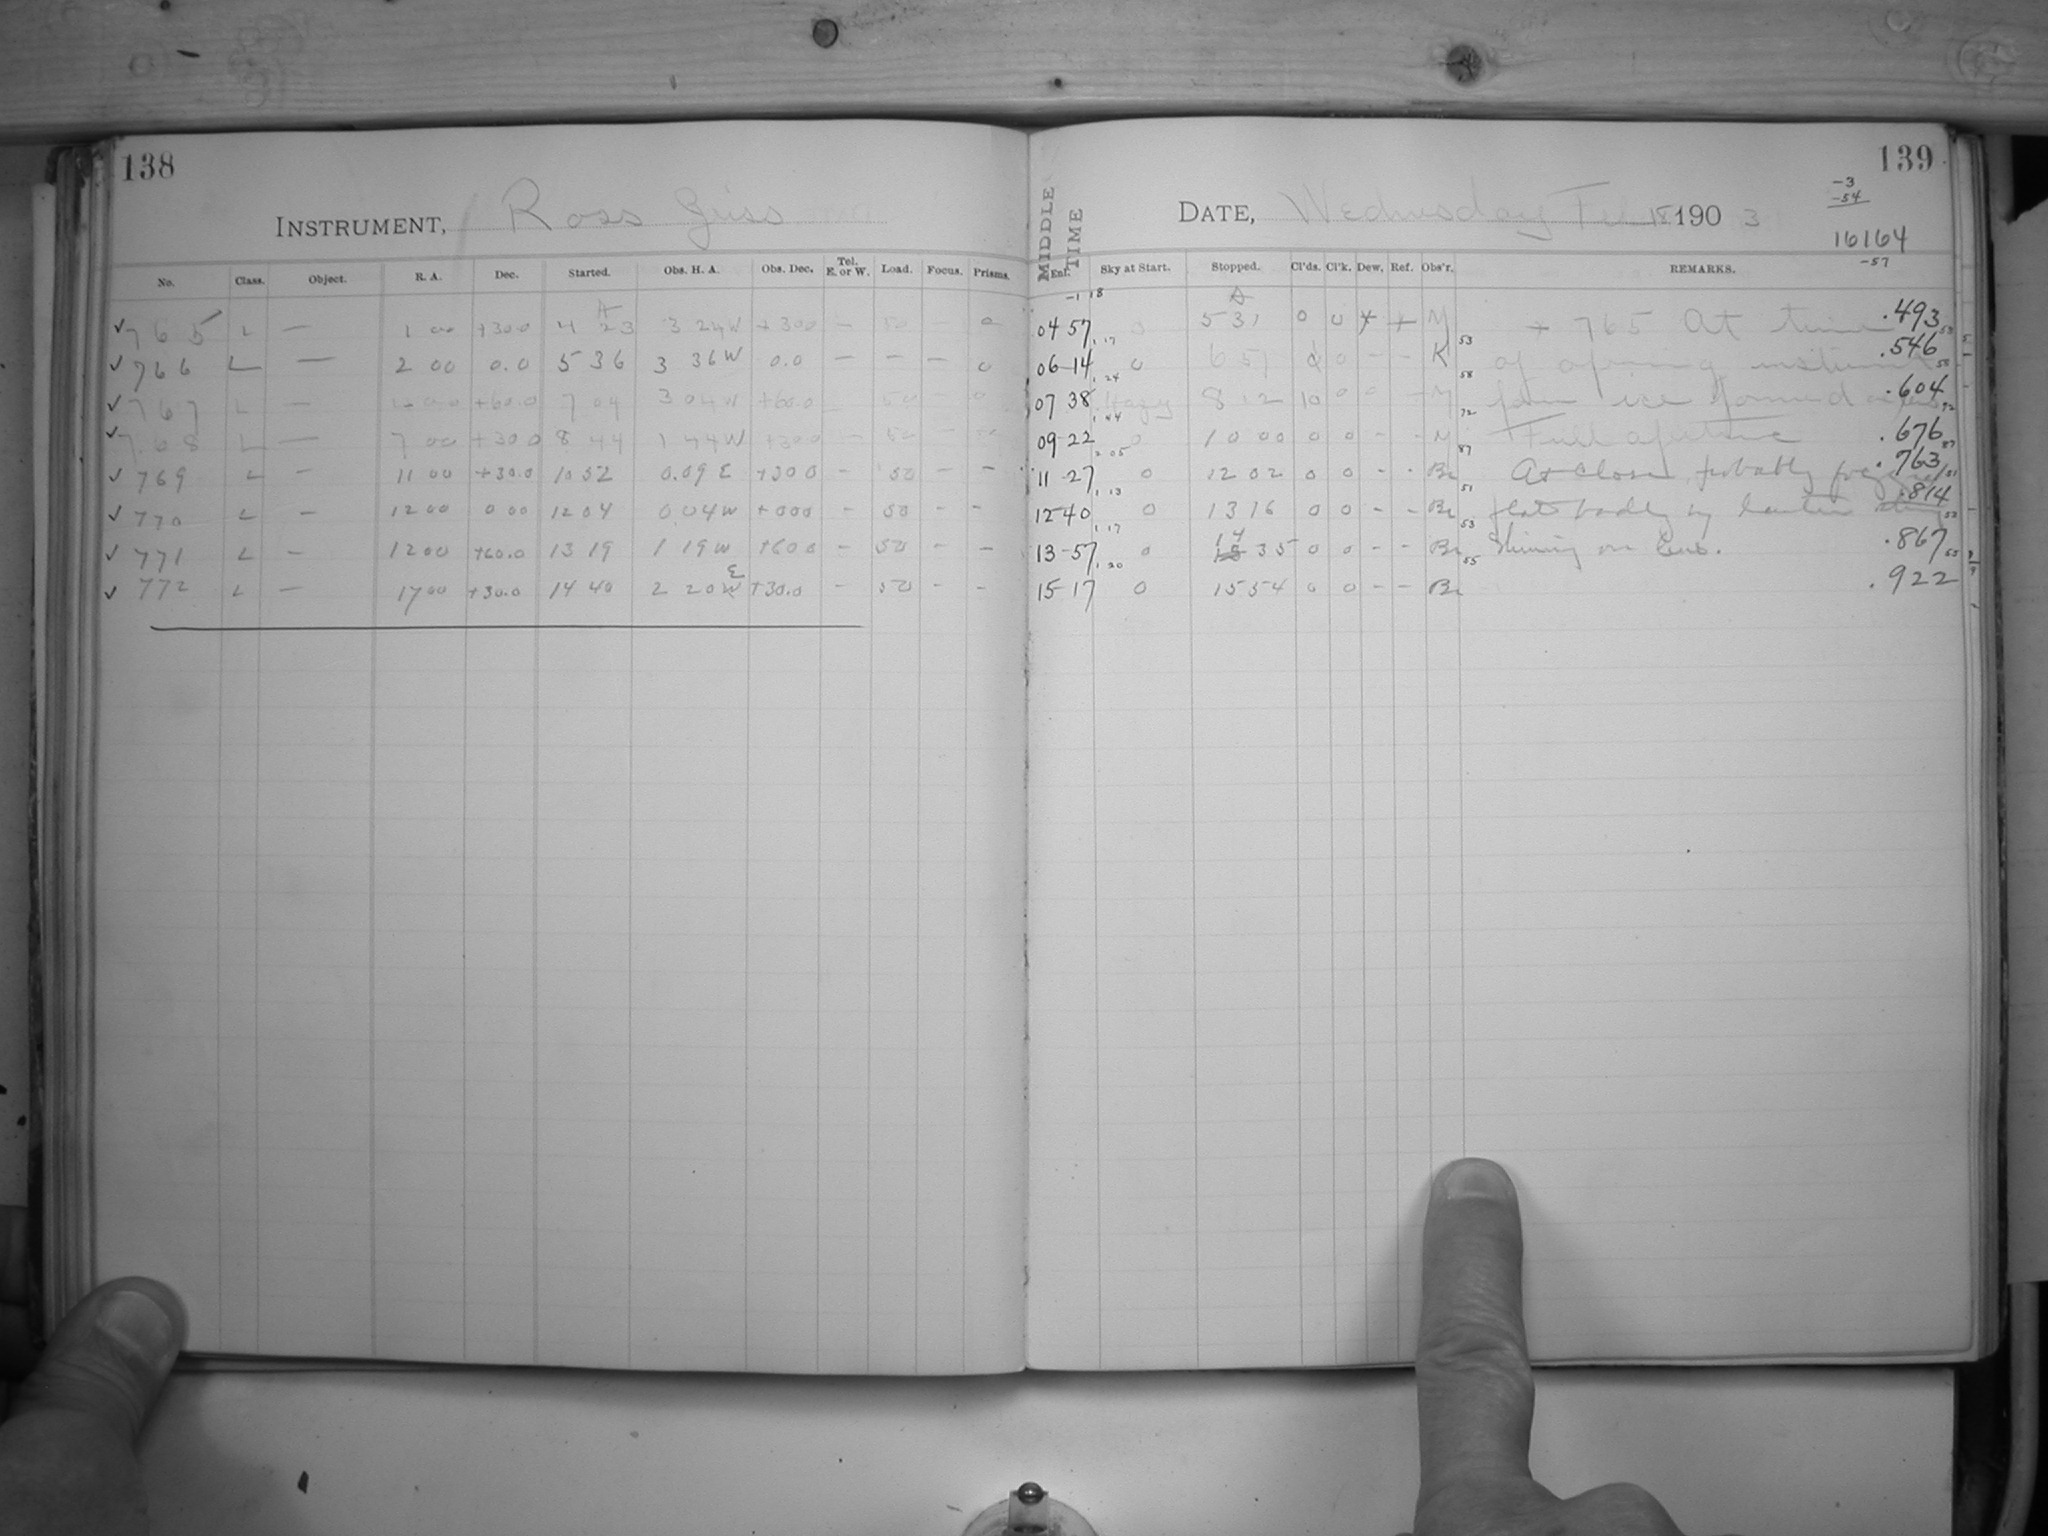 138
139
-3
-54
INSTRUMENT, Ross
MIDDLE TIME
DATE, Wednesday Feb 18 1903
16164
-57
No. Class. Object. R. A. Dec. Started. Obs. H. A. Obs. Dec. Tel. E. or W. Load. Focus. Prisms.
Enf. Sky at Start. Stopped. Cl'ds. Cl'k. Dew. Ref. Obs'r. REMARKS.
✓ 765 L — 1 00 +30.0 4 23 3 24W +300 — 50 — 0 04 57 0 531 0 0 + + M + 765 At time .493
✓ 766 L — 2 00 0.0 5 36 3 36W 0.0 — — — 0 06-14 0 651 0 — — K of opening .546
✓ 767 L — +60.0 7 04 3 04W +60.0 — 50 — 0 07 38 Hazy 8 12 10 0 0 - M ice formed .604
✓ 768 L — 7 00 +30.0 8 44 1 44W +300 — 50 — 09-22 0 10 00 0 0 - - M Full aperture .676
✓ 769 L — 11 00 +30.0 10 52 0.09 E +300 — 50 — — 11-27 0 12 02 0 0 - - Br At close, probably .763
✓ 770 L — 12 00 0 00 12 04 0.04W +000 — 50 — — 12-40 0 13 16 0 0 - - Br badly by lantern .814
✓ 771 L — 12 00 +60.0 13 19 1 19W +600 — 50 — — 13-57 0 14 35 0 0 - - Br Shining on lens. .867
✓ 772 L — 17 00 +30.0 14 40 2 20 E +30.0 — 50 — 15-17 0 15 54 0 0 - - Br .922